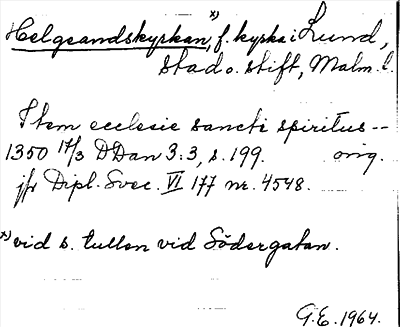 Helgeandskyrkan, x) f. kyrka i Lund,
stad o. stift, Malm. l.
Item ecclesie sancti spiritus --
1350 17/3 DDan 3:3, s. 199. orig.
jfr Dipl. Svec. VI 177 nr. 4548.
x) vid s. tullen vid Södergatan.
G.E. 1964.